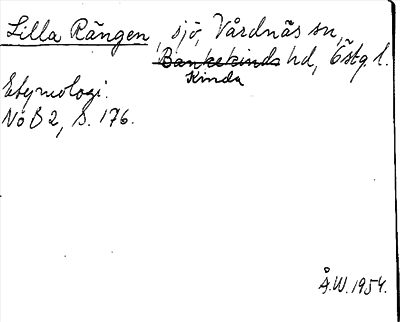 Lilla Rängen, sjö, Vårdnäs sn,
Bankekinds hd, Östg. l.
Kinda
Etymologi.
NoB 2, S. 176.
Å.W. 1954.